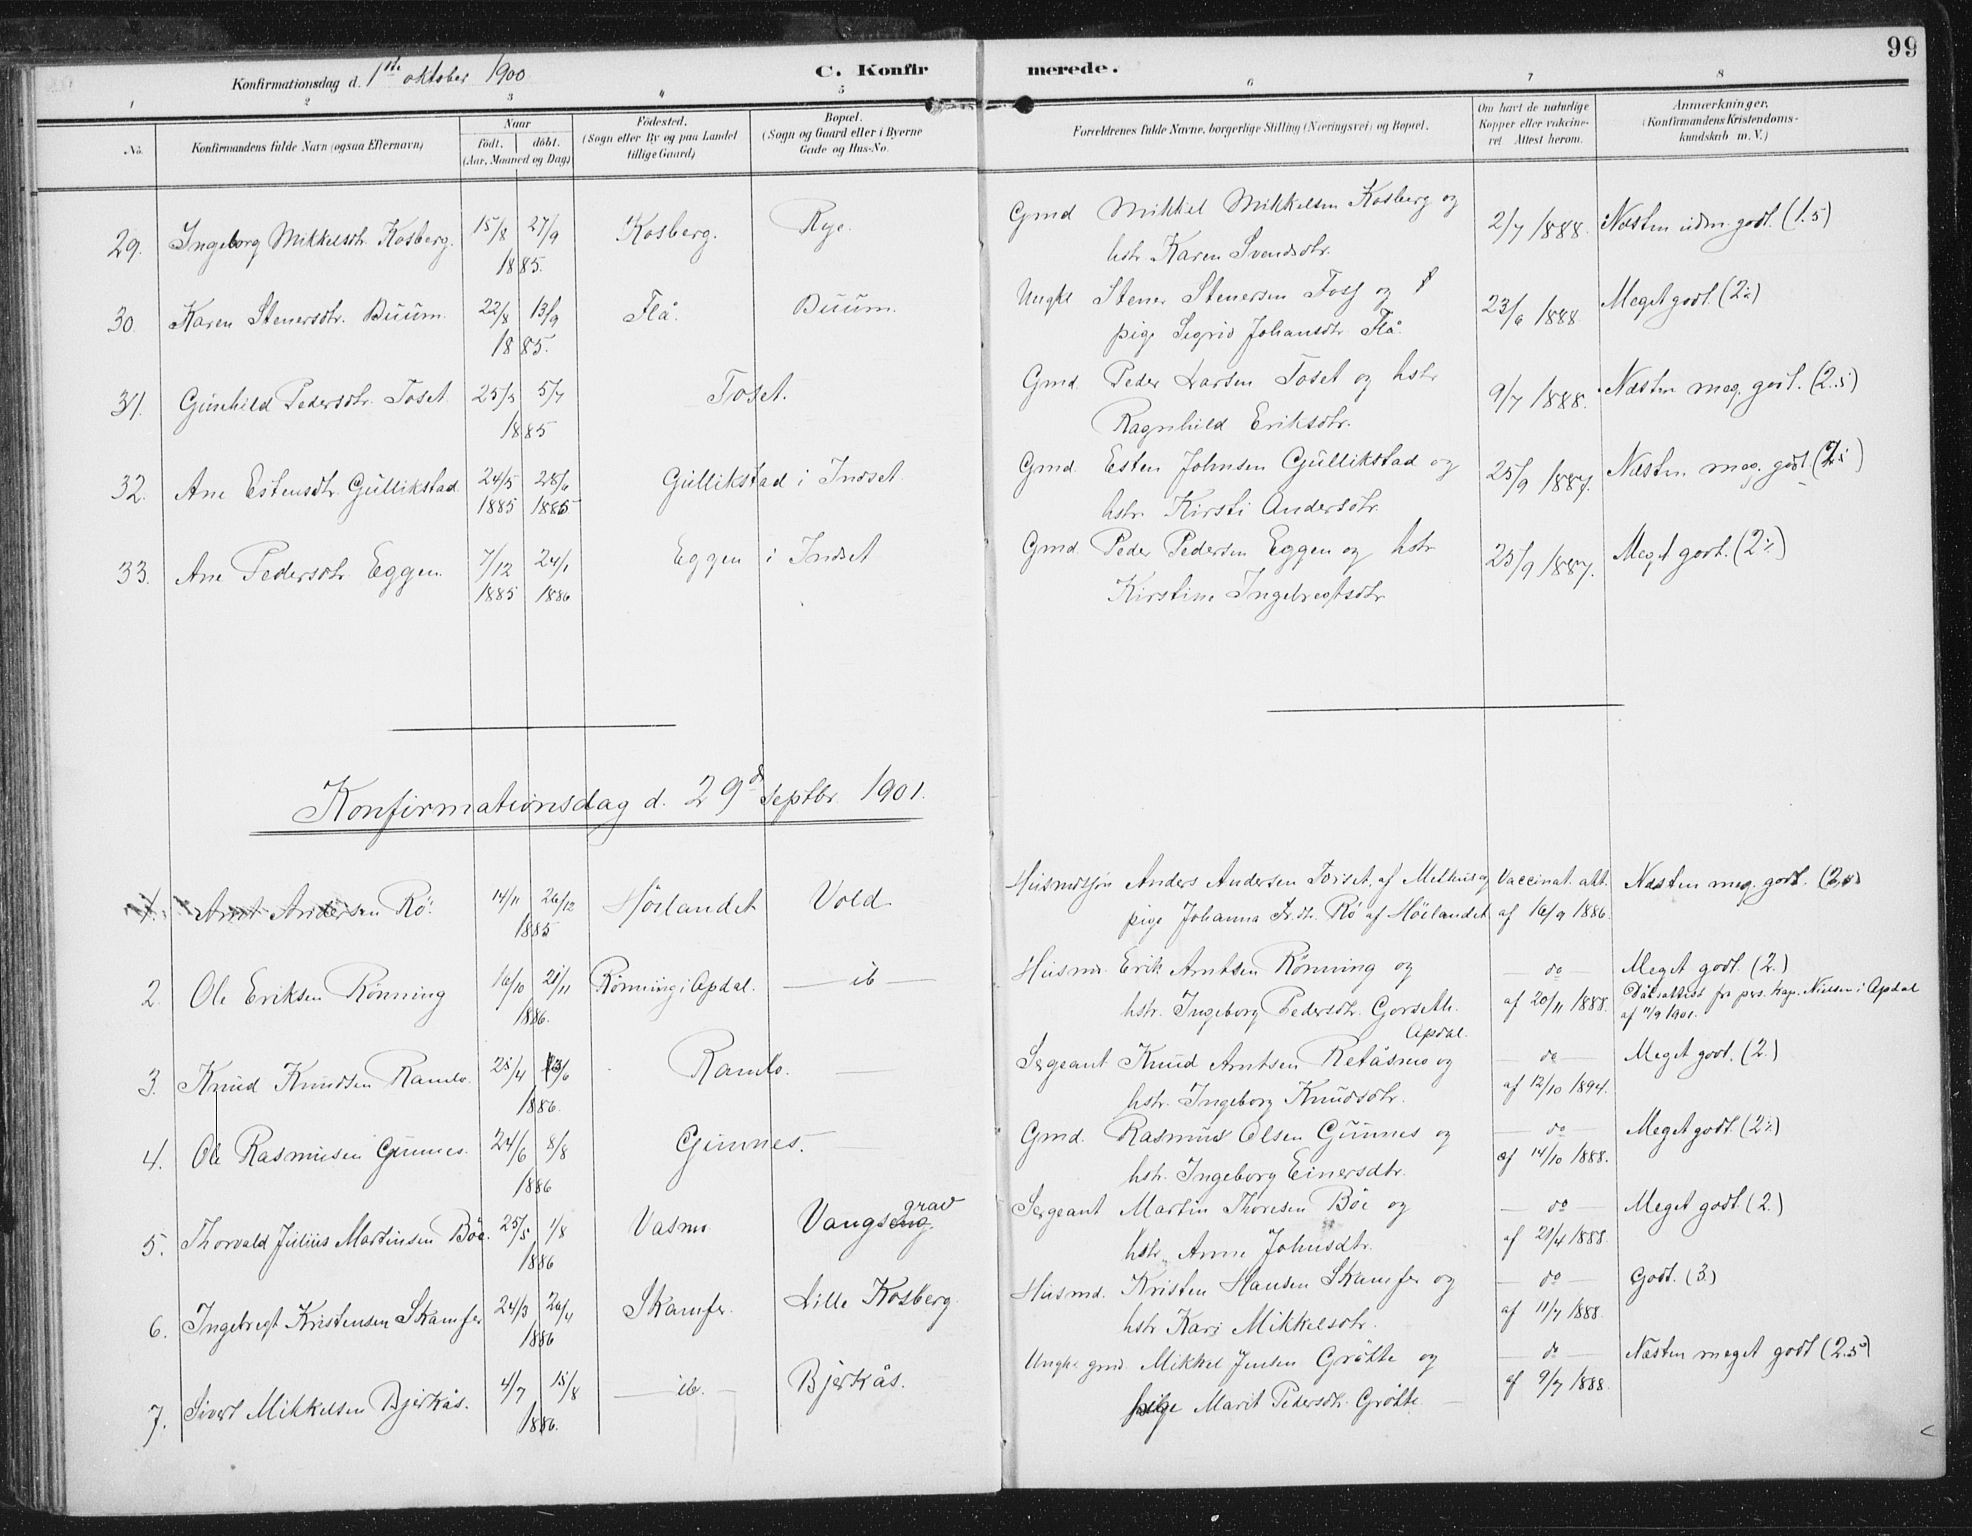 99
Konfirmationsdag d. 1ste oktober 1900
C. Konfirmerede.
1 2 3 4 5 6 7 8
No.
Konfirmandens fulde Navn (ogsaa Efternavn)
Naar
født. døbt.
(Aar, Maaned og Dag)
Fødested.
(Sogn eller By og paa Landet
tillige Gaard)
Bopæl.
(Sogn og Gaard eller i Byerne
Gade og Hus-No.
Forældrenes fulde Navne, borgerlige Stilling (Næringsvei) og Bopæl.
Om havt de naturlige
Kopper eller vakcine-
ret Attest herom.
Anmærkninger.
(Konfirmandens Kristendoms-
kundskab m. V.)
29. Ingeborg Mikkelsdtr. Kosberg. 15/8 27/9 Kosberg. Rye. Gmd Mikkel Mikkelsen Kosberg og 2/7 1888. Næsten uden godt. (1.5)
1885. hstr. Karen Svendsdtr.
30 Karen Stenersdtr. Buum. 22/8 13/9 Flå. Buum. Ungkl Stener Stenersen Foss og 23/6 1888 Meget godt. (2)
1885. pige Sigrid Johansdtr. Flå.
31. Gunhild Pedersdtr. Toset. 25/5 5/7 Toset. Gmd. Peder Larsen Toset og hstr 9/7 1888. Næsten meg. godt. (2.5)
1885 Ragnhild Eriksdtr.
32. Ane Estensdtr. Gullikstad 24/5 28/6 Gullikstad i Indset. Gmd. Esten Johnsen Gullikstad og 25/9 1887. Næsten meg. godt.
1885 1885 hstr. Kirsti Andersdtr.
33. Ane Pedersdtr. Eggen. 7/12 24/1 Eggen i Indset Gmd. Peder Pedersen Eggen og hstr 25/9 1887. Meget godt. (2)
1885 1886 Kirstine Ingebregtsdtr
Konfirmationsdag d. 29de septbr. 1901.
1. Arnt Andersen Rö. 14/11 26/12 Höilandet Vold Anders Andersen af Melhus og Vaccinat. att. Næsten meg. godt.
1885 pige Johanna Rö af Höilandet af 16/9 1886.
2. Ole Eriksen Rönning 16/10 21/11 Rönning i Opdal. — ib — Husmd. Erik Arntsen Rönning og — do — Meget godt. (2.)
1886. hstr. Ingeborg Pedersdtr. Gorseth. af 20/11 1888. Dåbsattest fra pers. kap. Nielsen i Opdal
Opdal. af 11/9 1901.
3. Knud Knudsen Ramlo. 25/4 13/6 Ramlo. — Sergeant Knud Arntsen Retåsmo og — do — Meget godt. (2.)
1886. hstr. Ingeborg Knudsdtr. af 12/10 1894.
4. Ole Rasmusen Gunnes. 24/6 8/8 Gunnes. — Gmd. Rasmus Olsen Gunnes og — do — Meget godt. (2)
1886 hstr. Ingeborg Einersdtr. af 14/10 1888.
5. Thorvald Julius Martinsen Böe. 25/5 1/8 Vasmo Vangsgrav Sergeant Martin Thoresen Böe og — do — Meget godt. (2.)
1886 hstr. Anne Johnsdtr. af 21/4 1888.
6. Ingebregt Kristensen Skamfer 24/3 26/4 Skamfer. Lille Kosberg. Husmd. Kristen Hansen Skamfer og — do — Godt. (3.)
1886 hstr Kari Mikkelsdtr. af 11/7 1888.
7. Sivert Mikkelsen Bjerkås. 4/7 15/8 — ib. — Bjerkås. Ungk. gmd. Mikkel Jensen Grötte og — do — Næsten meget godt (2.5)
1886. pige Marit Pedersdtr. Grötte — af 9/7 1888.